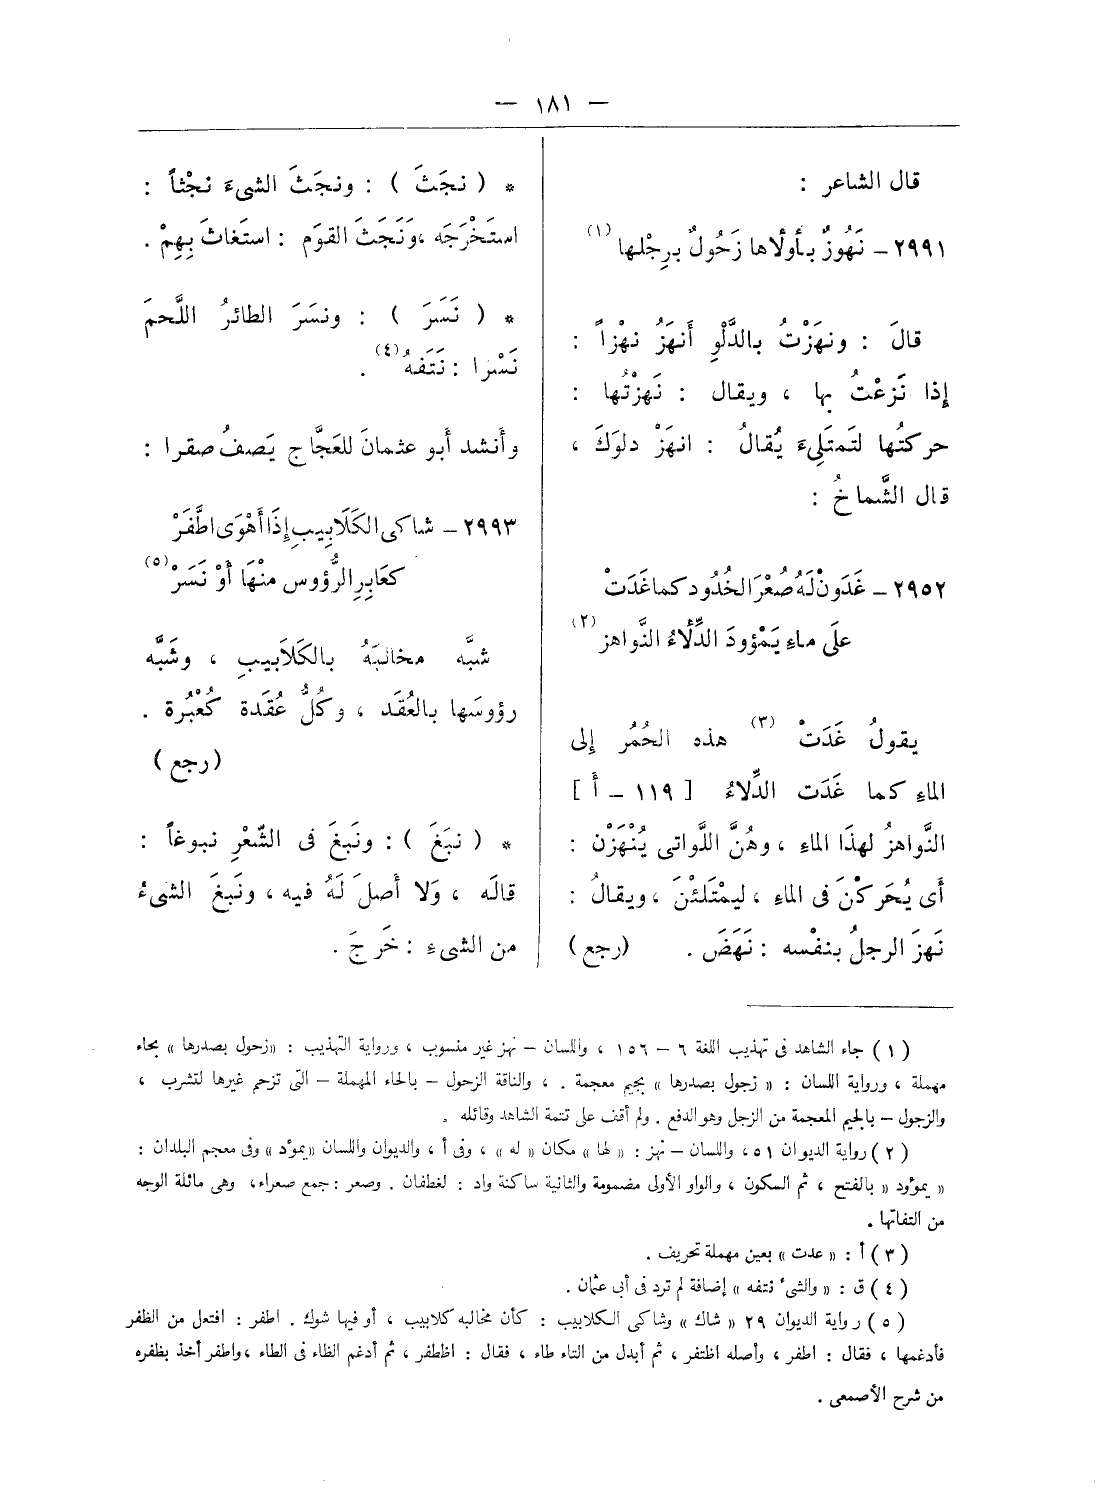 — ١٨١ —
قال الشاعر :
٢٩٩١ – نَهُوزٌ بأولَاها زَحُولٌ برِجْلها (١)
قالَ : ونهَزْتُ بالدَّلْوِ أَنهَزُ نهْزاً :
إِذا نَزعْتُ بها ، ويقال : نَهزْتُها :
حركتُها لتَمتَلِىءَ يُقالُ : انهَزْ دلوَكَ ،
قال الشَّماخُ :
٢٩٥٢ – غَدَونْ لَهُ صُعْرَ الخُدُود كما غَدَتْ
علَى ماءِ يَمْؤودَ الدِّلَاءُ النَّواهز (٢)
يقولُ غَدَتْ (٣) هذه الحُمُر إِلى
الماءِ كما غَدَت الدِّلاءُ [ ١١٩ – أ ]
النَّواهزُ لهذَا الماءِ ، وهُنَّ اللَّواتى يُنْهَزْن :
أَى يُحَركْنَ فى الماءِ ، ليمْتَلئْنَ ، ويقالُ :
نَهزَ الرجلُ بنفْسه : نَهَضَ . (رجع)
* ( نجَثَ ) : ونجَثَ الشىءَ نجْثاً :
استَخْرَجَه ، ونَجَثَ القوَم : استَغاثَ بِهِمْ .
* ( نَسَرَ ) : ونسَرَ الطائرُ اللَّحمَ
نَسْرا : نَتَفهُ (٤) .
وأَنشد أَبو عثمانَ للعَجَّاج يَصفُ صقرا :
٢٩٩٣ – شاكى الكَلَابِيبِ إِذَا أَهْوَى اطَّفَرْ
كعَابِرِ الرُّؤوس منْهَا أَوْ نَسَرْ (٥)
شبَّه مخالبَهُ بالكَلَابيبِ ، وشَبَّه
رؤوسَها بالعُقَد ، وكُلُّ عُقَدة كُعْبُرة .
(رجع)
* ( نبَغَ ) : ونَبغَ فى الشّعْرِ نبوغاً :
قالَه ، وَلا أَصلَ لَهُ فيه ، ونَبغَ الشىءُ
من الشىءِ : خَرجَ .
(١) جاء الشاهد فى تهذيب اللغة ٦ – ١٥٦ ، واللسان – نهز غير منسوب ، ورواية التهذيب : «زحول بصدرها » بحاء
مهملة ، ورواية اللسان : « زجول بصدرها » بجيم معجمة . ، والناقة الزحول – بالحاء المهملة – التى تزحم غيرها لتشرب ،
والزجول – بالجيم المعجمة من الزجل وهو الدفع . ولم أقف على تتمة الشاهد وقائله .
(٢) رواية الديوان ٥١ ، واللسان – نهز : « لها » مكان « له » ، وفى أ ، والديوان واللسان «يموْد » وفى معجم البلدان :
« يموْود » بالفتح ، ثم السكون ، والواو الأولى مضمومة والثانية ساكنة واد : لغطفان . وصعر : جمع صعراء ، وهى مائلة الوجه
من التفاتها .
(٣) أ : « عدت » بعين مهملة تحريف .
(٤) ق : « والشىء نتفه » إضافة لم ترد فى أبى عثمان .
(٥) رواية الديوان ٢٩ « شاك » وشاكى الكلابيب : كأن مخالبه كلابيب ، أو فيها شوك . اطفر : افتعل من الظفر
فأدغمها ، فقال : اطفر ، وأصله اظتفر ، ثم أبدل من التاء طاء ، فقال : اظطفر ، ثم أدغم الظاء فى الطاء ، واطفر أخذ بظفره
من شرح الأصمعى .